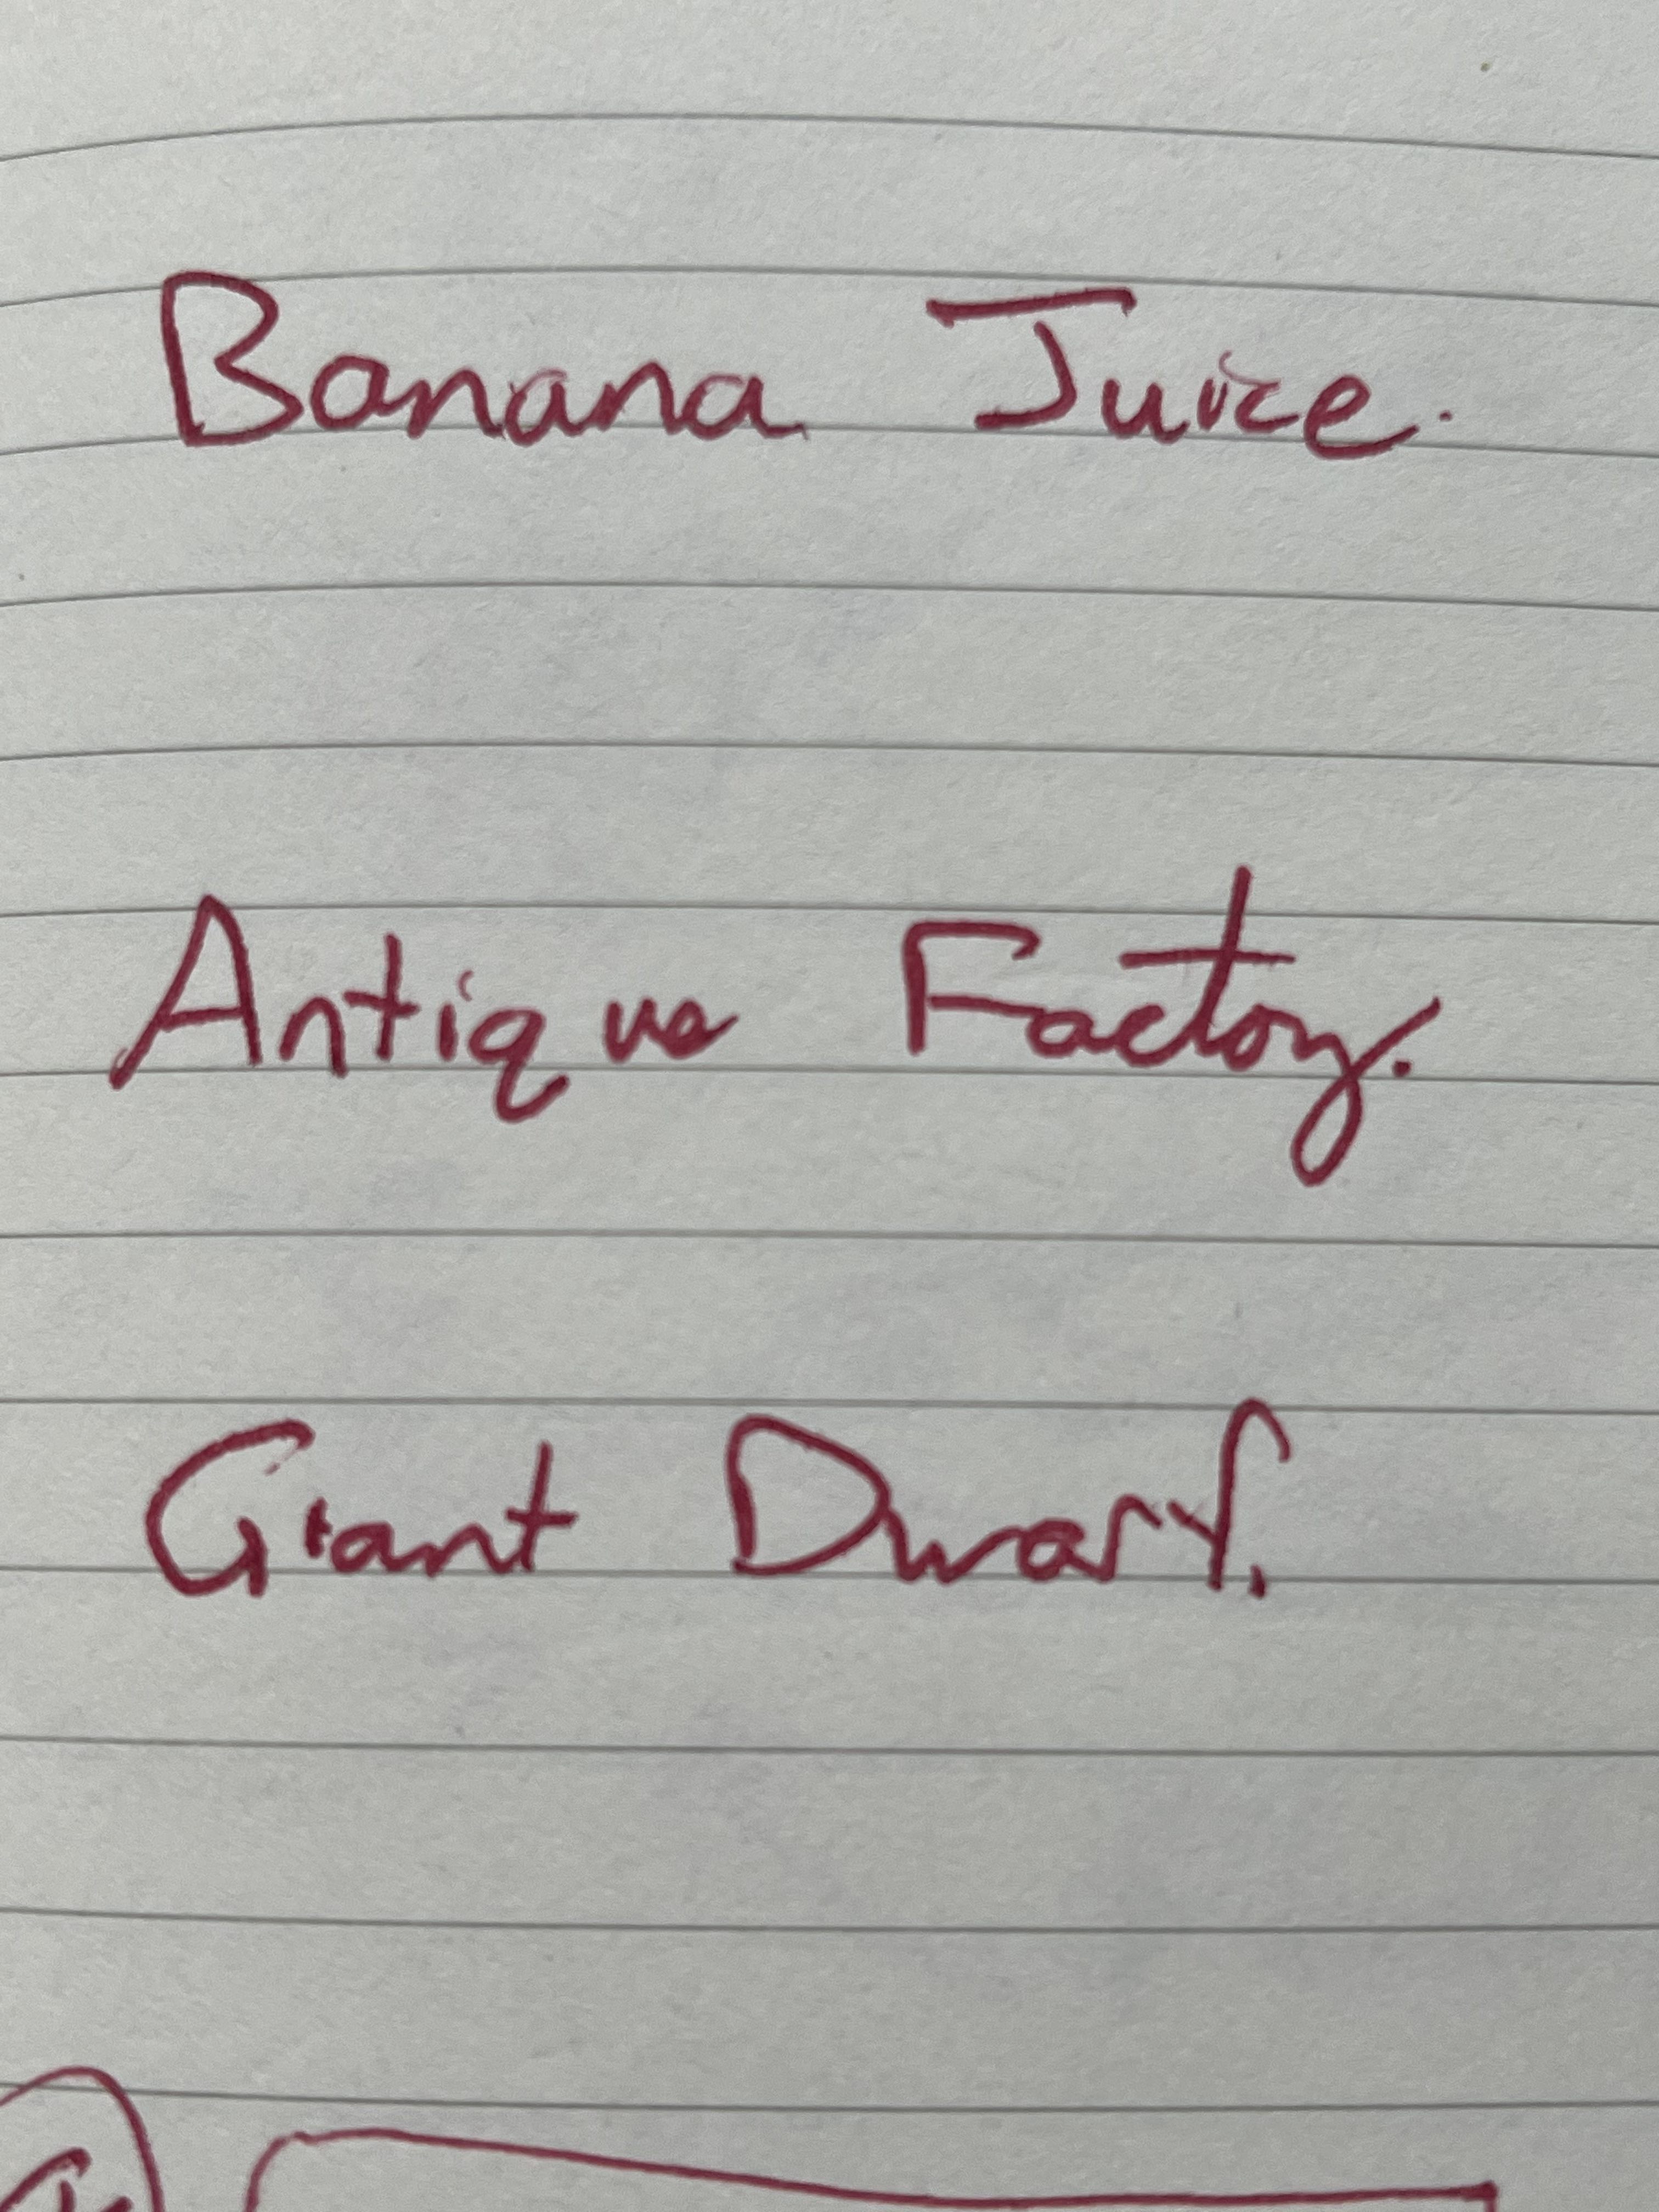 Banana Juice.
Antique Factory.
Giant Dwarf.